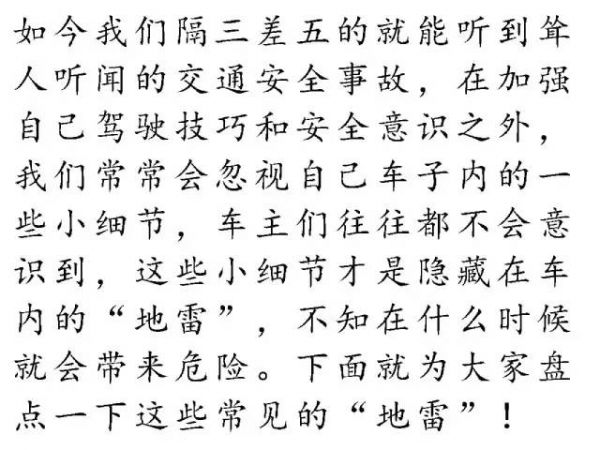 如今我们隔三差五的就能听到耸
人听闻的交通安全事故，在加强
自己驾驶技巧和安全意识之外，
我们常常会忽视自己车子内的一
些小细节，车主们往往都不会意
识到，这些小细节才是隐藏在车
内的“地雷”，不知在什么时候
就会带来危险。下面就为大家盘
点一下这些常见的“地雷”！